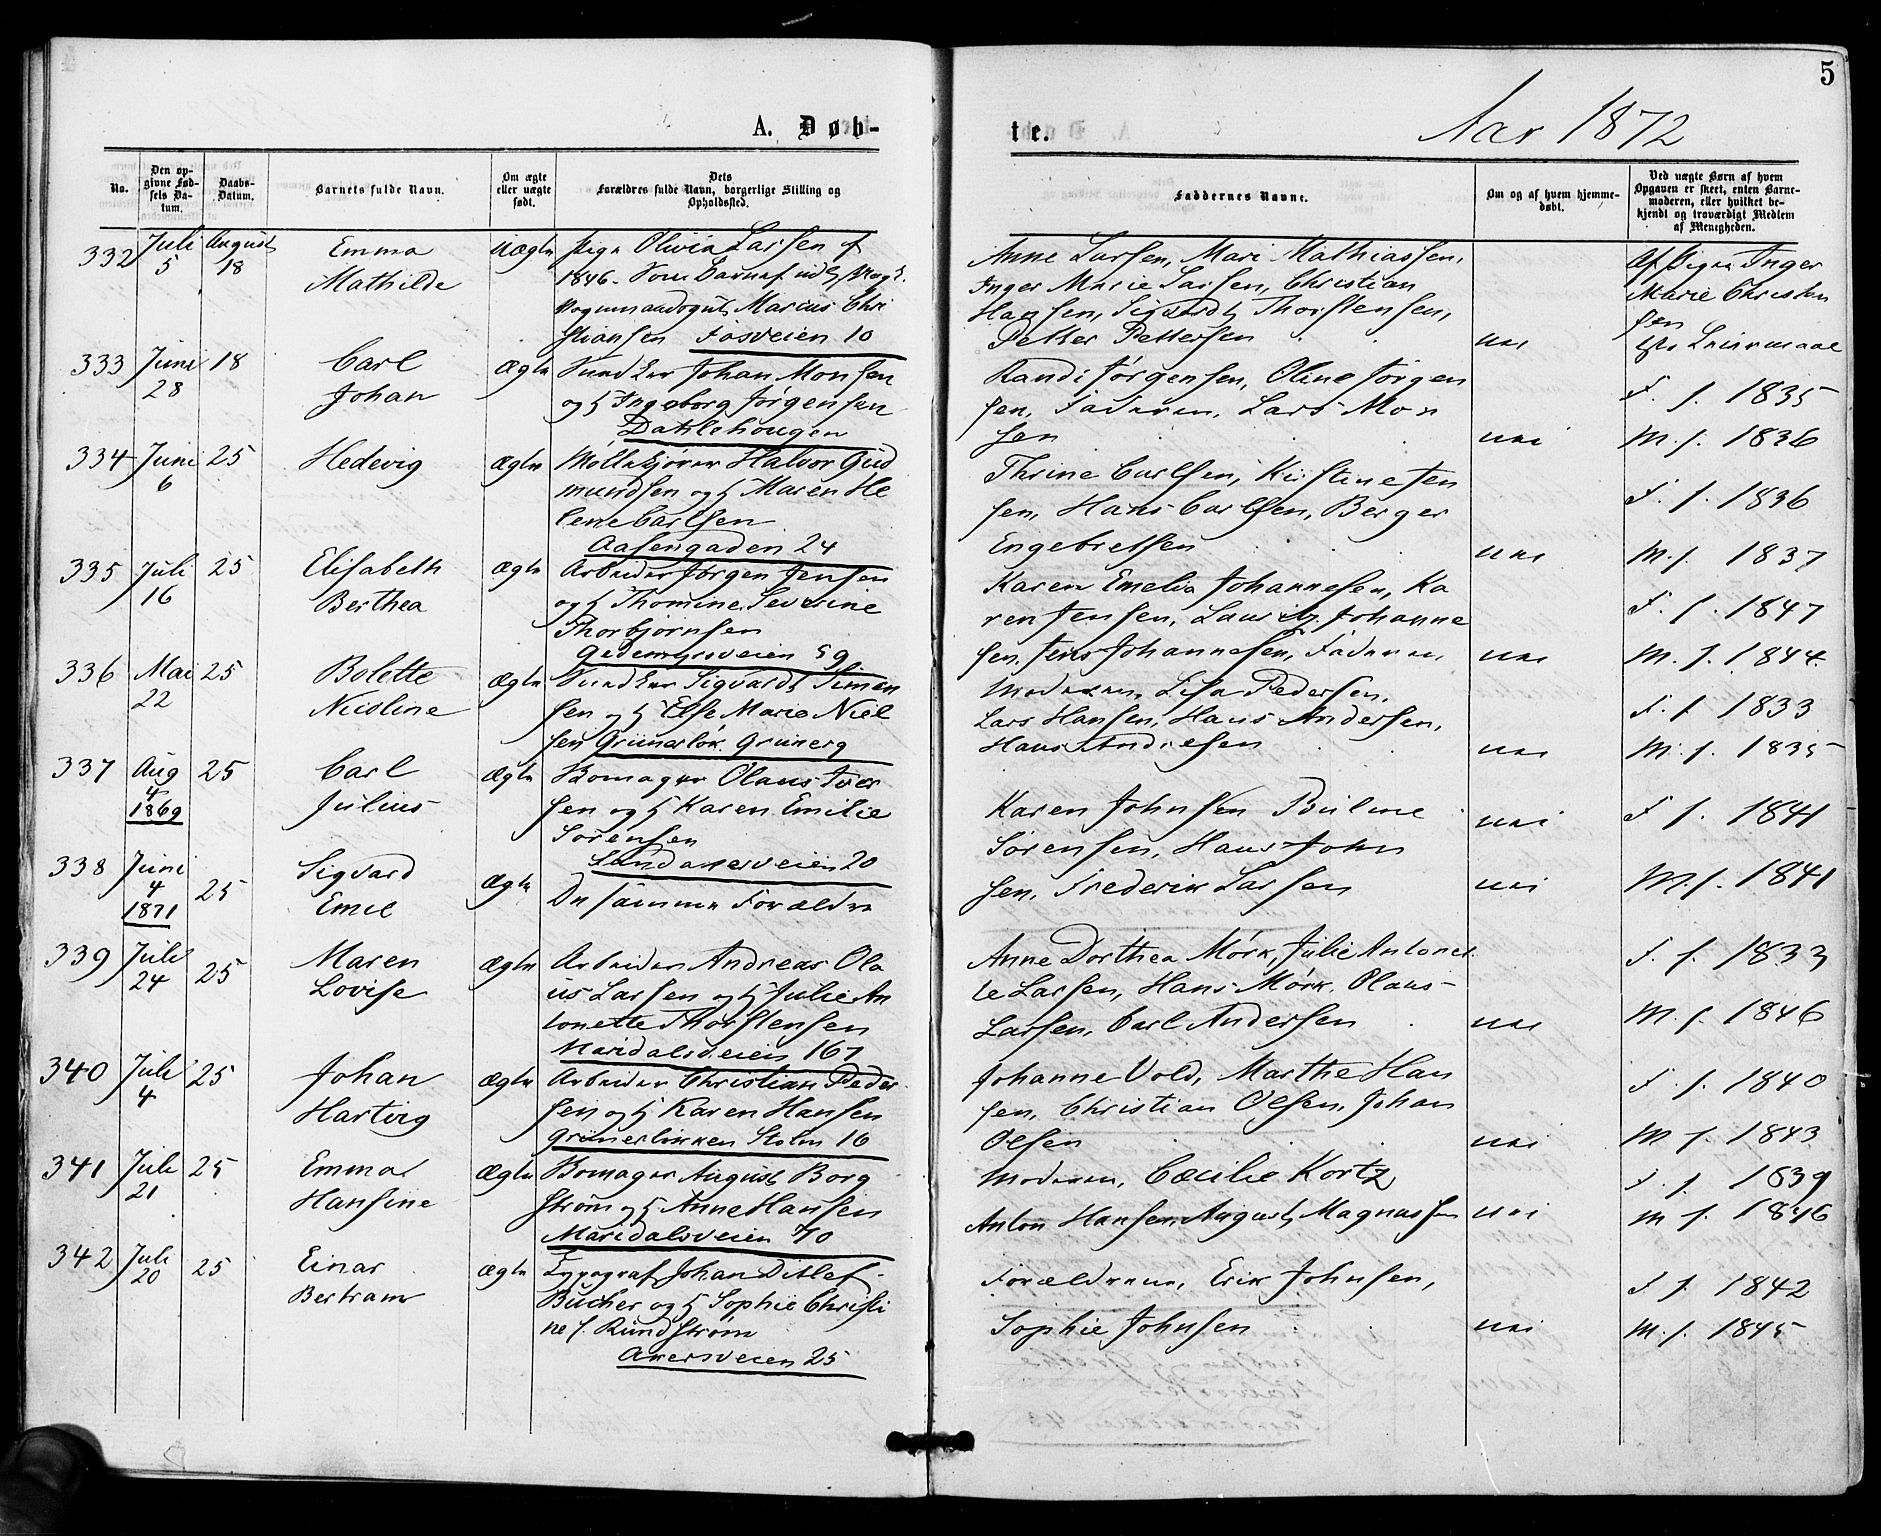 5
A. Døb-
te.
Aar 1872
No.
Den op-
givne Fød-
sels Da-
tum.
Daabs-
Datum.
Barnets fulde Navn.
Om ægte
eller uægte
født.
Dets
Forældres fulde Navn, borgerlige Stilling og
Opholdssted.
Faddernes Navne.
Om og af hvem hjemme-
døbt.
Ved uægte Børn af hvem
Opgaven er skeet, enten Barne-
moderen, eller hvilket be-
kjendt og troværdigt Medlem
af Menigheden.
332 Juli 5 August 18 Emma Mathilde Uægte
Pige Olivia Larsen f
1846.
Marius Chri
stiansen Fosveien 10
Anne Larsen, Mari Mathiassen,
Inger Marie Larsen, Christian
Hansen, Sigvardt Thorstensen,
Petter Pettersen nei
Af Pigen Inger
Marie Christen
sen
333 Juni 28 18 Carl Johan Ægte
Snedker Johan Monsen
og H Ingeborg Jørgensen
Dahlehougen
Randi Jørgensen, Oline Jørgen
sen, Faderen, Lars Mon
sen nei
F. f. 1835
M. f. 1836
334 Juni 6 25 Hedevig Ægte
Møllekjører Halvor Gud
mundsen og H Maren He
lene Carlsen
Aasengaden 24
Thrine Carlsen, Kristine Jen
sen, Hans Carlsen, Berger
Engebretsen nei
F. f. 1836
M. f. 1837
335 Juli 16 25 Elisabeth Berthea Ægte
Arbeider Jørgen Jensen
og H Thomine Severine
Thorbjørnsen
Gedemyrsveien 59
Karen Emelia Johannesen, Ka
ren Jensen, Lauritz Johanne
sen, Jens Johannesen, Faderen, nei
F. f. 1847
M. f. 1844
336 Mai 22 25 Bolette Nicoline Ægte
Snedker Sigvardt Simen
sen og H Else Marie Niel
sen Grünerløk. Grünerg
Moderen, Lisa Pedersen,
Lars Hansen, Hans Andersen,
Hans Andresen nei
F. f. 1833
M. f. 1835
337 Aug 4 1869 25 Carl Julius Ægte
Bomager Olaus Iver
sen og H Karen Emilie
Sørensen
Sandakerveien 20
Karen Johnsen
Sørensen, Hans John
nei
F. f. 1841
338 Juni 4 1871 25 Sigvard Emil Ægte
De samme Forældre
sen, Frederik Larsen nei
M. f. 1841
339 Juli 24 25 Maren Lovise Ægte
Arbeider Andreas Ola
us Larsen og H Julie An
tonette Thorstensen
Maridalsveien 167
Anne Dorthea Mørk, Julie Antonet
te Larsen, Hans Mørk, Olaus
Larsen, Carl Andersen nei
F. f. 1833
M. f. 1846
340 Juli 4 25 Johan Hartvig Ægte
Arbeider Christian Peder
sen og H Karen Hansen
Grünerløkken Stolm 16
Johanne Vold, Marthe Han
sen, Christian Olsen, Johan
Olsen nei
F. f. 1840
M. f. 1843
341 Juli 21 25 Emma Hansine Ægte
Bomager August Borg
strøm og H Anne Hansen
Maridalsveien 70
Moderen, Cæcilie Kortz
Anton Hansen, August Magnussen nei
F. f. 1839
M. f. 1846
342 Juli 20 25 Einar Bertram Ægte
Typograf Johan Ditlef
Bucher og H Sophie Christi
ne f. Rundstrøm
Akersveien 25
Forældrene, Erik Johnsen,
Sophie Johnsen nei
F. f. 1842
M. f. 1845